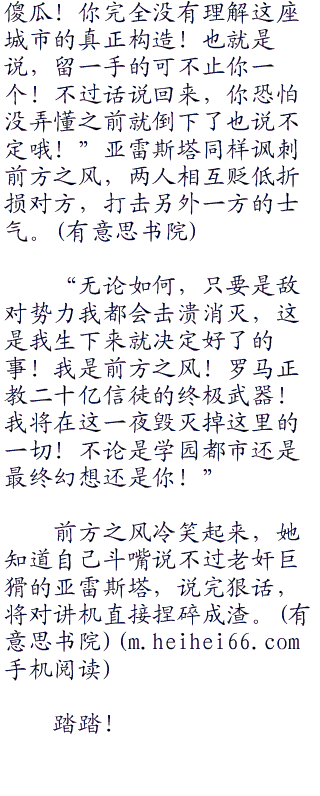 傻瓜！你完全没有理解这座
城市的真正构造！也就是
说，留一手的可不止你一
个！不过话说回来，你恐怕
没弄懂之前就倒下了也说不
定哦！”亚雷斯塔同样讽刺
前方之风，两人相互贬低折
损对方，打击另外一方的士
气。(有意思书院)
“无论如何，只要是敌
对势力我都会击溃消灭，这
是我生下来就决定好了的
事！我是前方之风！罗马正
教二十亿信徒的终极武器！
我将在这一夜毁灭掉这里的
一切！不论是学园都市还是
最终幻想还是你！”
前方之风冷笑起来，她
知道自己斗嘴说不过老奸巨
猾的亚雷斯塔，说完狠话，
将对讲机直接捏碎成渣。(有
意思书院)(m.heihei66.com
手机阅读)
踏踏！